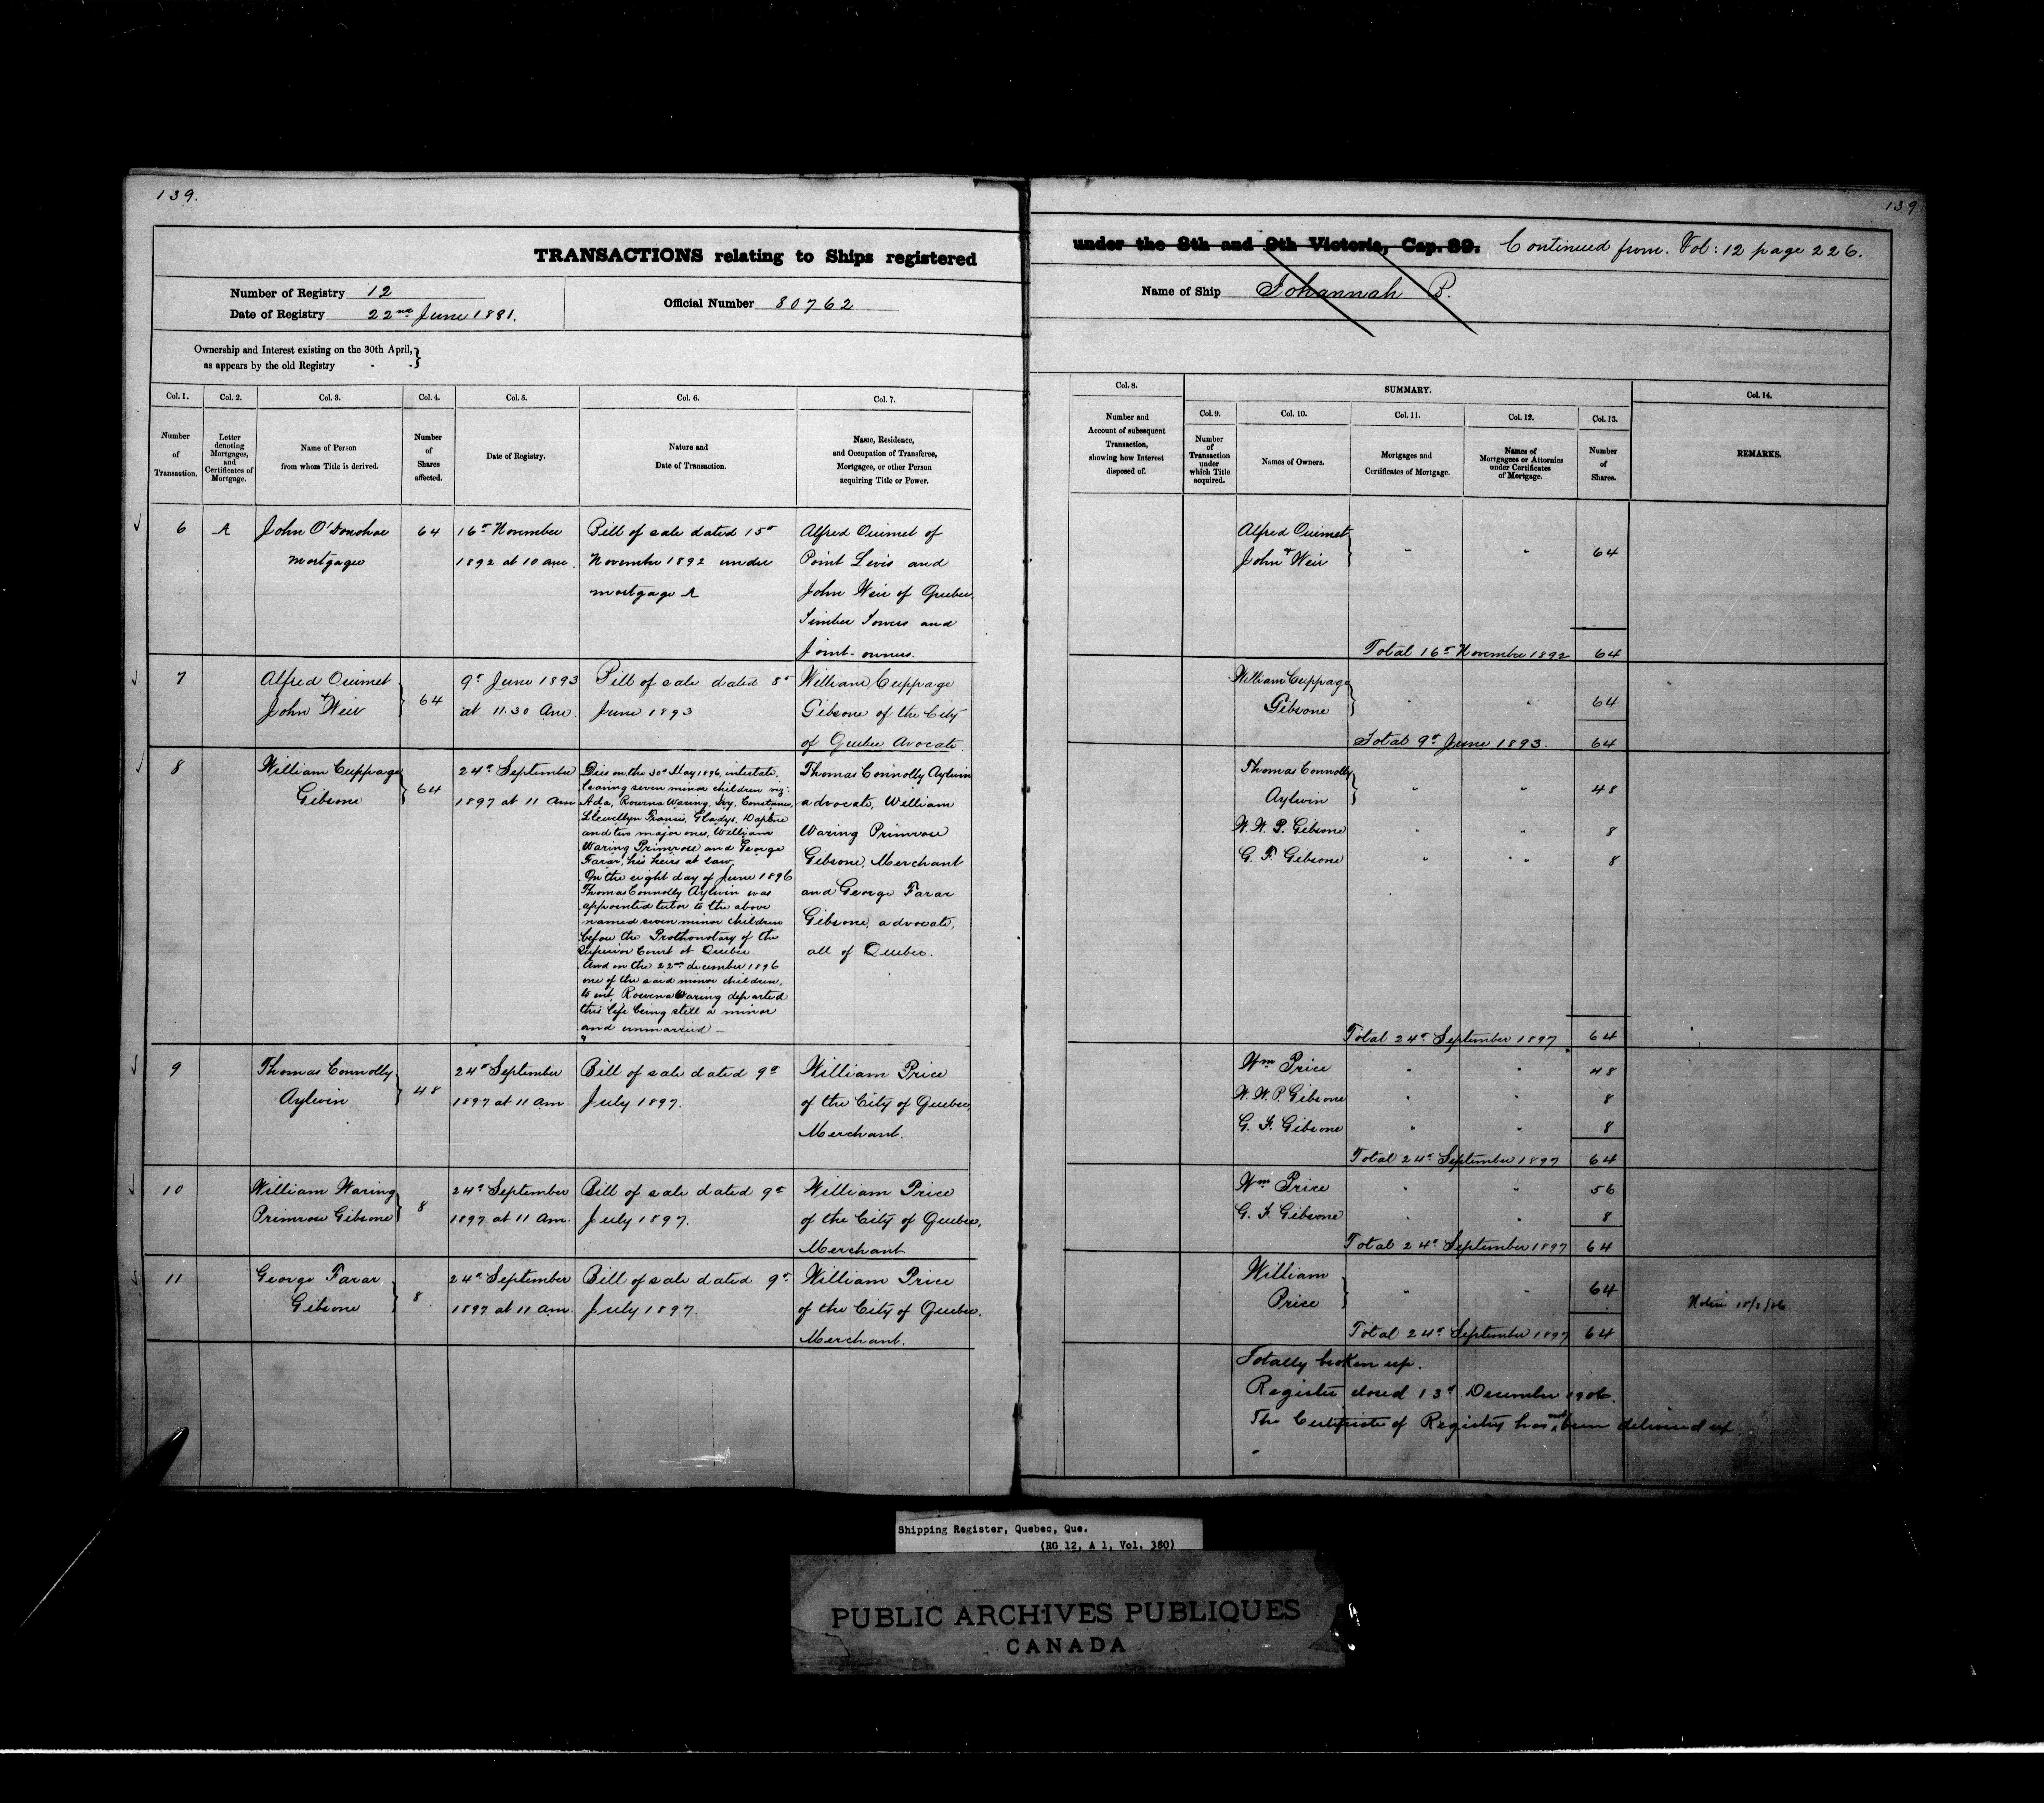 139.
TRANSACTIONS relating to Ships registered
Number of Registry 12
Date of Registry 22nd June 1881.
Official Number 80762
Ownership and Interest existing on the 30th April,
as appears by the old Registry
Col. 1. Col. 2. Col. 3. Col. 4. Col. 5. Col. 6. Col. 7.
Number of Transaction.
Letter denoting Mortgages, and Certificates of Mortgage.
Name of Person from whom Title is derived.
Number of Shares affected.
Date of Registry.
Nature and Date of Transaction.
Name, Residence, and Occupation of Transferee, Mortgagee, or other Person acquiring Title or Power.
6 A John O'Donohoe 64 16th November Bill of sale dated 15th Alfred Ouimet of
mortgagee 1892 at 10 am. November 1892 under Point Levis and
mortgage A John Weir of Quebec,
Timber Towers and
Joint-owners.
7 Alfred Ouimet 64 9th June 1893 Bill of sale dated 8th William Cuppage
& John Weir at 11.30 Am. June 1893 Gibsone of the City
of Quebec Avocate.
8 William Cuppage Gibsone 64
24th September
1897 at 11 am
Dies on the 30th May 1896, intestate,
leaving seven minor children viz:
Ada, Rowena Waring, Ivy, Constance,
Llewellyn Francis, Gladys, Daphne
and two major ones, William
Waring Primrose and George
Farar, his heirs at law.
On the eight day of June 1896
Thomas Connolly Aylwin was
appointed tutor to the above
named seven minor children
before the Prothonotary of the
Superior Court at Quebec
And on the 22nd december 1896
one of the said minor children,
to wit, Rowena Waring departed
this life being still a minor
and unmarried -
Thomas Connolly Aylwin
advocate, William
Waring Primrose
Gibsone, Merchant
and George Farar
Gibsone, advocate,
all of Quebec.
9 Thomas Connolly 48 24th September Bill of sale dated 9th William Price
Aylwin 1897 at 11 am. July 1897. of the City of Quebec,
Merchant.
10 William Waring 8 24th September Bill of sale dated 9th William Price
Primrose Gibsone 1897 at 11 am. July 1897. of the City of Quebec,
Merchant
11 George Farar 8 24th September Bill of sale dated 9th William Price
Gibsone 1897 at 11 am. July 1897. of the City of Quebec.
Merchant.
139
under the 8th and 9th Victoria, Cap. 89. Continued from. Vol: 12 page 226.
Name of Ship Johannah B.
Col. 8. SUMMARY. Col. 14.
Col. 9. Col. 10. Col. 11. Col. 12. Col. 13.
Number and Account of subsequent Transaction, showing how Interest disposed of.
Number of Transaction under which Title acquired.
Names of Owners.
Mortgages and Certificates of Mortgage.
Names of Mortgagees or Attornies under Certificates of Mortgage.
Number of Shares.
REMARKS.
Alfred Ouimet
& John Weir " " 64
Total 16th November 1892 64
William Cuppage
Gibsone " " 64
Total 9th June 1893. 64
Thomas Connolly
Aylwin " " 48
W. W. P. Gibsone " " 8
G. F. Gibsone " " 8
Total 24th September 1897 64
Wm Price " " 48
W. W. P. Gibsone " " 8
G. F. Gibsone " " 8
Total 24th September 1897 64
Wm Price " " 56
G. F. Gibsone " " 8
Total 24th September 1897 64
William
Price " " 64
Total 24th September 1897 64
Totally broken up.
Register closed 13th December 1906.
The Certificate of Registry has not been delivered up.
Shipping Register, Quebec, Que.
(RG 12, A 1, Vol. 380)
PUBLIC ARCHIVES PUBLIQUES
CANADA